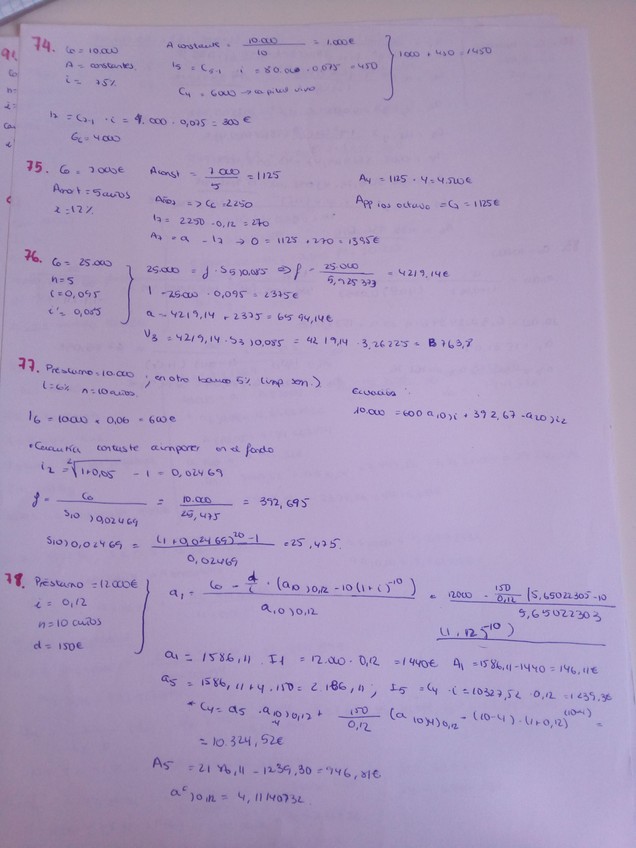 74. C0 = 10.000
A = constantes
i = 7,5%
A constante = 10.000 / 10 = 1.000€
I5 = C5-1 · i = 6000 · 0,075 = 450
C4 = 6000 → capital vivo
1000 + 450 = 1450
I7 = C7-1 · i = 4.000 · 0,075 = 300€
C6 = 4000
75. C0 = 9000€
Amort = 5 años
i = 12%
A const = / 5 = 1125
=> C6 = 2250
I7 = 2250 · 0,12 = 270
A7 = a - I7 → a = 1125 + 270 = 1395€
A4 = 1125 · 4 = 4.500€
octavo = C7 = 1125€
76. C0 = 25.000
n = 5
i = 0,095
i' = 0,085
25.000 = f · S5¬0,085 => f = 25.000 / 5,925373 = 4219,14€
I = 25000 · 0,095 = 2375€
a = 4219,14 + 2375 = 6594,14€
V3 = 4219,14 · S3¬0,085 = 4219,14 · 3,26225 = 13763,8
77. Préstamo = 10.000 ; en otro banco 5% (imp sem.)
i = 6% n = 10 años.
10.000 = 600 a10¬i + 392,67 · a20¬i2
I6 = 10.000 · 0,06 = 600€
• Cuantía constante a imponer en el fondo
i2 = ²√1+0,05 - 1 = 0,02469
f = C0 / S10¬0,02469 = 10.000 / 25,475 = 392,695
S10¬0,02469 = (1+0,02469)^20 - 1 / 0,02469 = 25,475.
78. Préstamo = 12000€
i = 0,12
n = 10 años
d = 150€
a1 = C0 - d/i · (a10¬0,12 - 10(1+i)^-10) / a10¬0,12 = 12000 - 150/0,12 (5,65022305 - 10 / 5,65022303
(1,12)^-10)
a1 = 1586,11 . I1 = 12.000 · 0,12 = 1440€ A1 = 1586,11 - 1440 = 146,11€
a5 = 1586,11 + 4 · 150 = 2.186,11 ; I5 = C4 · i = 10327,52 · 0,12 = 1239,3€
* C4 = a5 · a10-4¬0,12 + 150/0,12 (a10-4¬0,12 - (10-4) · (1+0,12)^-(10-4) =
= 10.324,52€
A5 = 2186,11 - 1239,30 = 946,81€
a6¬0,12 = 4,11140732.